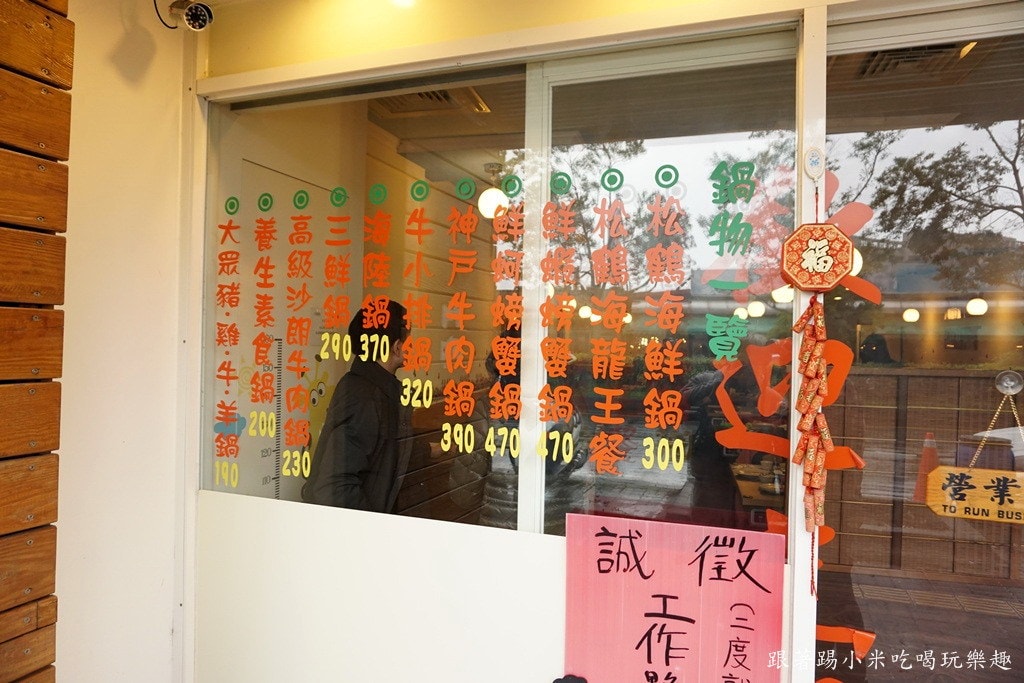 鍋物一覽
松鶴海鮮鍋300
松鶴海龍王餐
鮮蝦螃蟹鍋470
鮮蚵螃蟹鍋470
神戶牛肉鍋390
牛小排鍋320
海陸鍋370
三鮮鍋290
高級沙朗牛肉鍋230
養生素食鍋200
大眾豬·雞·牛·羊鍋190
迎
福
營業
TO RUN BUS
誠徵
工作
(二度
120
110
跟著踢小米吃喝玩樂趣